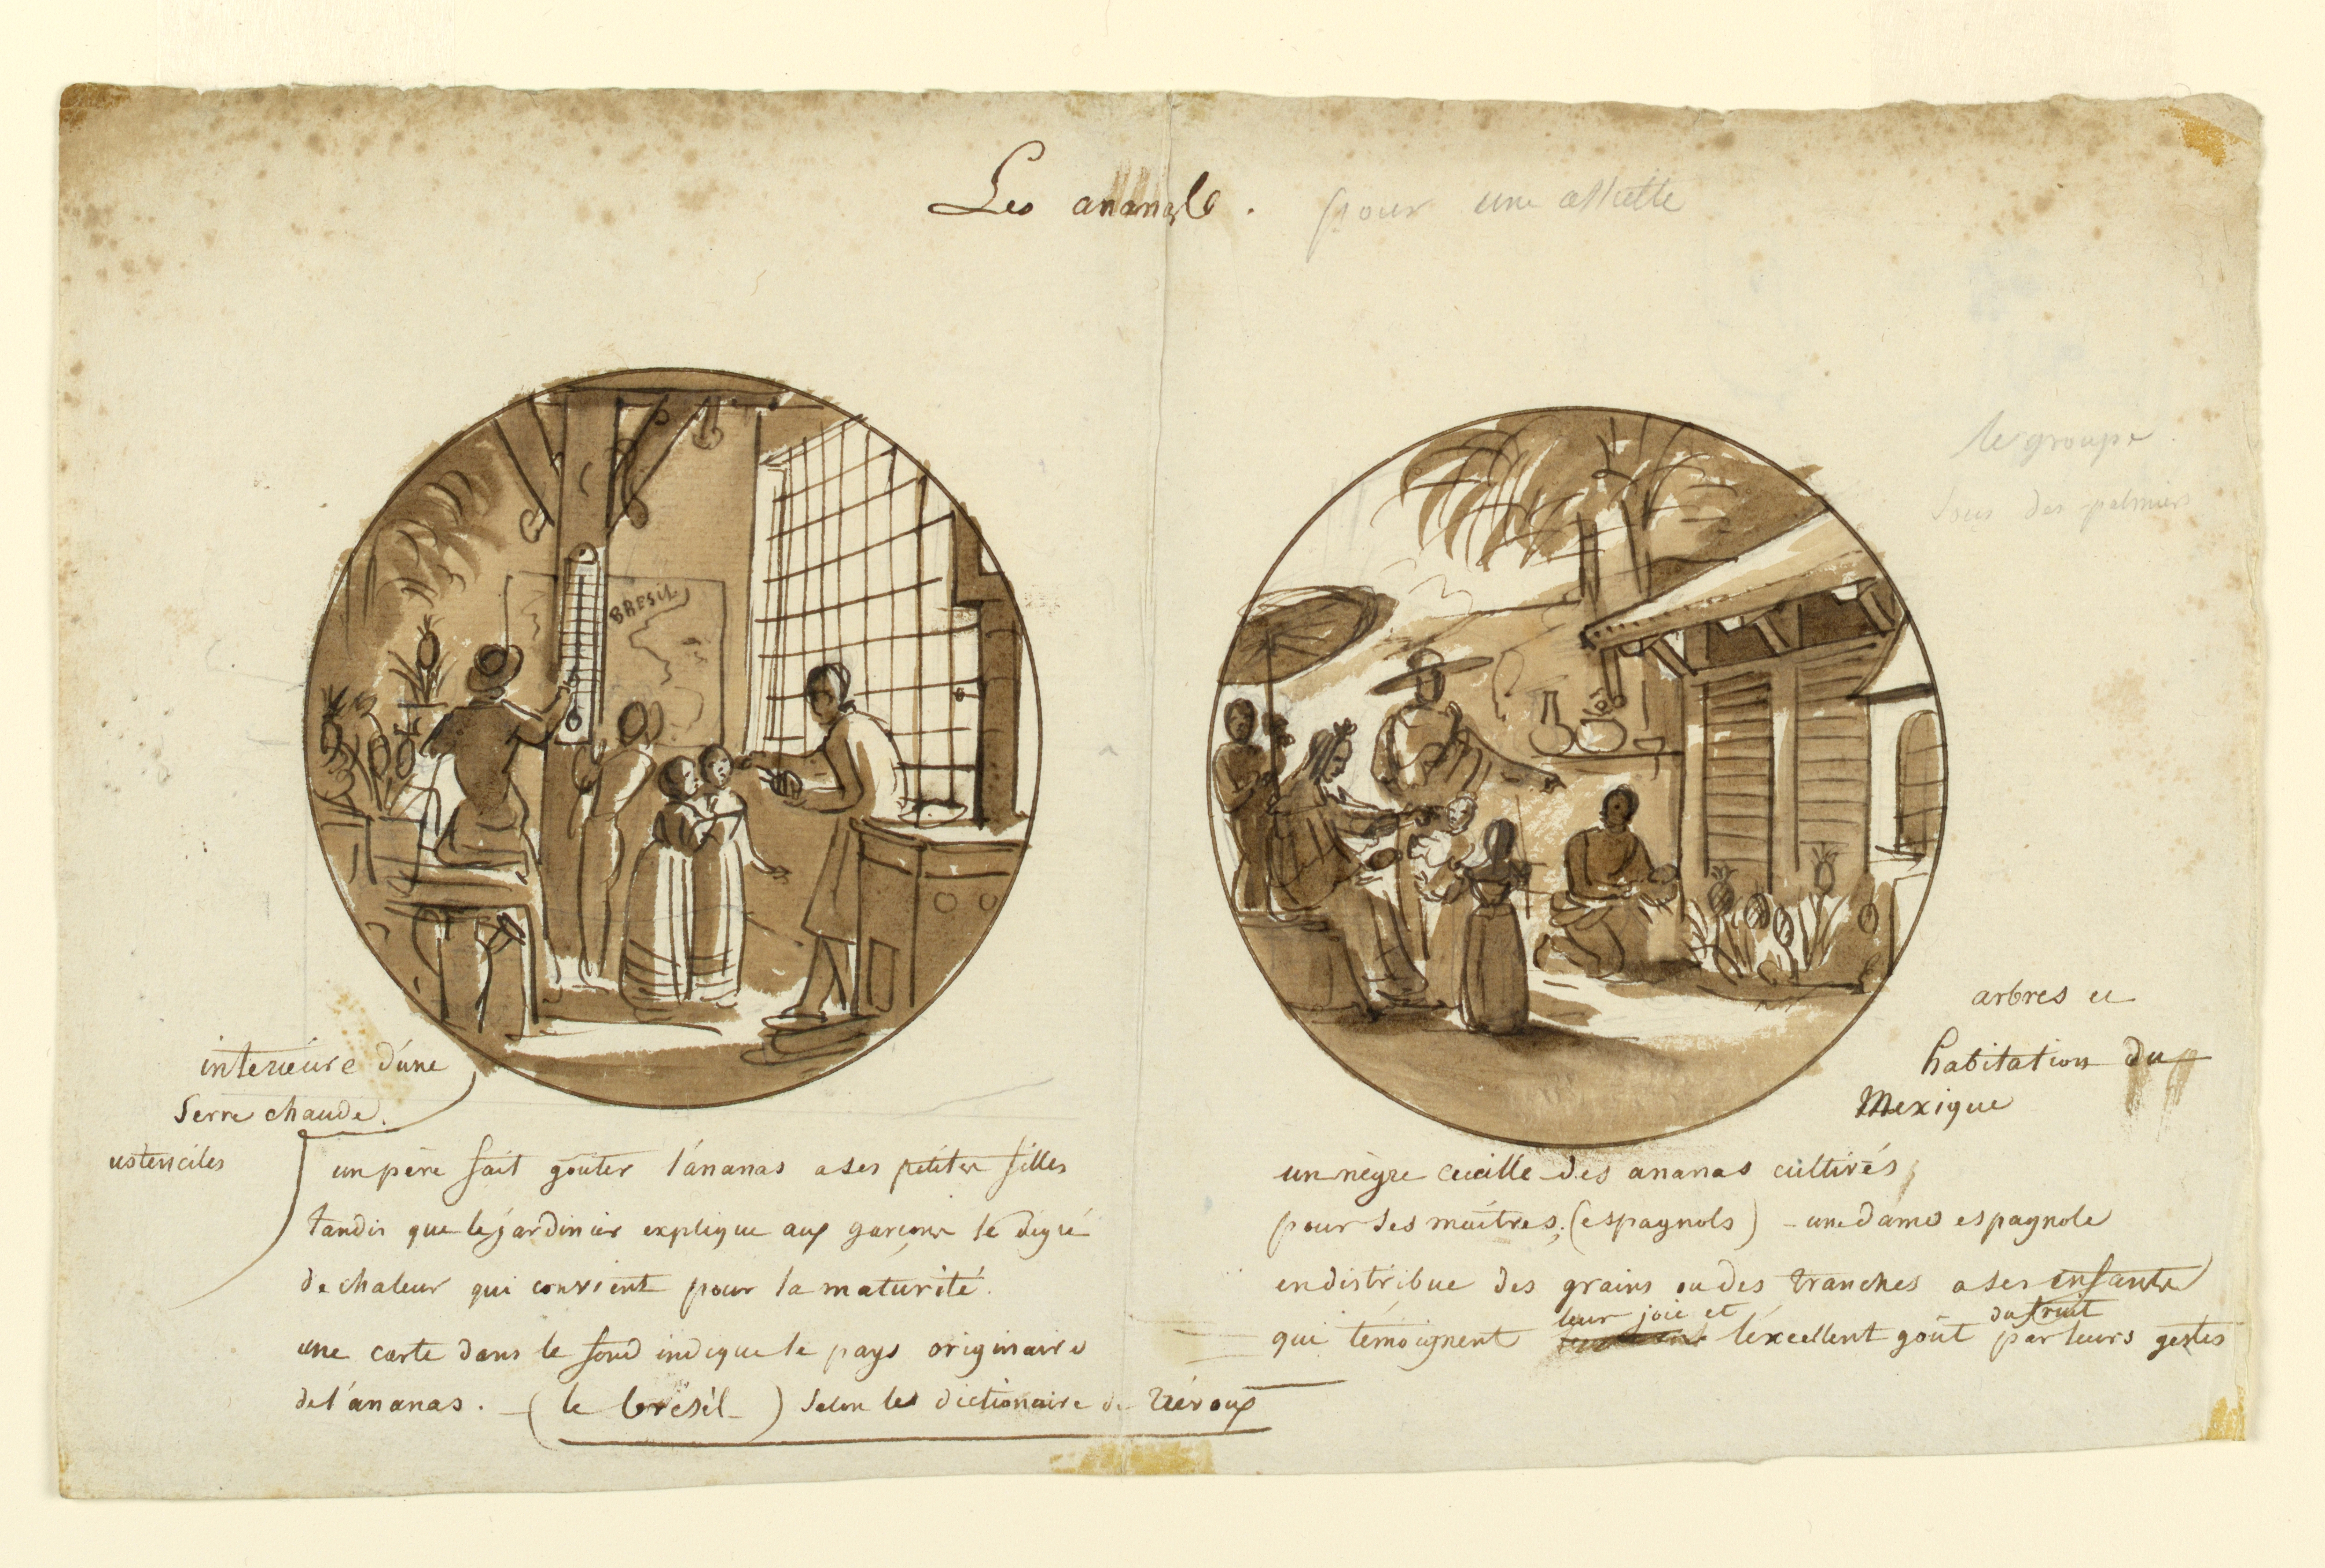 Les ananas.
pour une assiette
BRESIL
le groupe
sous des palmiers
interieure d'une
Serre chaude.
ustenciles
un père fait goûter l'ananas a ses petites filles
tandis que le jardinier explique aux garçons le digré
de chaleur qui convient pour la maturité.
une carte dans le fond indique le pays originaire
de l'ananas. - (le brésil -) selon le dictionaire de Trévoux
arbres et
habitation du
Mexique
un nègre ceuille des ananas cultivés
pour ses maîtres, (espagnols) - une dame espagnole
en distribue des grains ou des tranches a ses enfants
leur joie et du fruit
qui témoignent l'éxcellent goût par leurs gestes